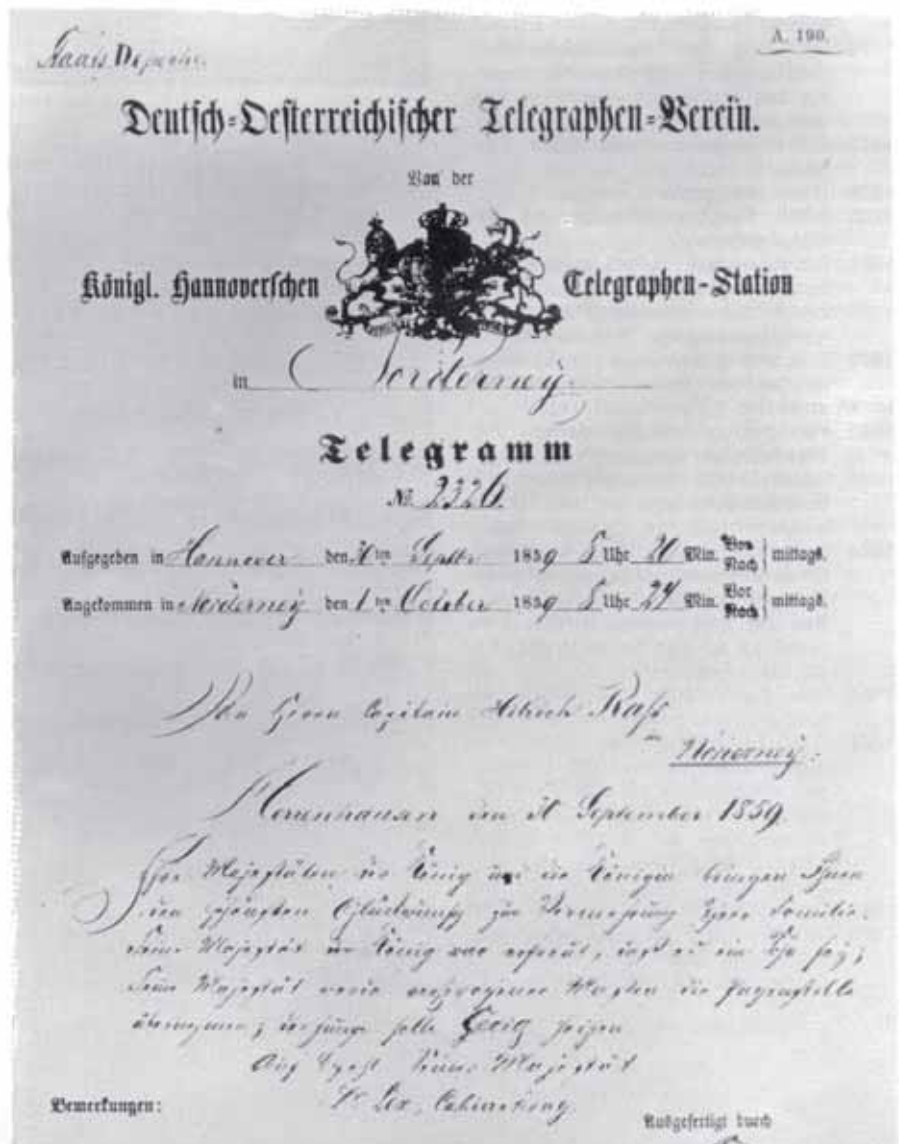 Staats Depesche.
A. 190.
Deutsch-Oesterreichischer Telegraphen-Verein.
Von der
Königl. Hannoverschen Telegraphen-Station
in Norderney.
Telegramm
№ 2326.
Aufgegeben in Hannover den 30 ten Septbr 1859 8 Uhr 20 Min. Vor Nach } mittags.
Angekommen in Norderney den 1 ten October 1859 8 Uhr 24 Min. Vor Nach } mittags.
An Herrn Capitain Rass
Norderney.
Herrenhausen den 30 September 1859.
Ihre Majestäten der König und die Königin bringen Ihnen
den schönsten Glückwunsch zur Vermehrung Ihrer Familie.
Seine Majestät der König war erfreut, daß es ein Sohn sey;
Seine Majestät werde die Pathenstelle
übernehmen; der Junge solle Georg heißen
Auf Befehl Seiner Majestät
Dr Lex,
Bemerkungen:
Ausgefertigt durch